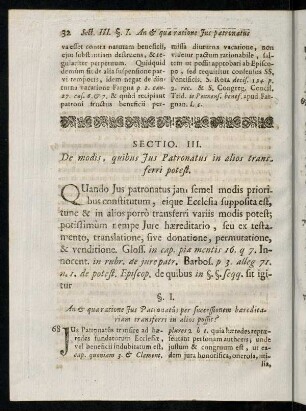 32 Sect. III. §. I. An & quâ ratione Jus patronatûs
va esset contra normam beneficii,
ejus substantiam destruens, & sin-
gulariter perpetuum. Quidquid
demum sit de alia suspensione par-
vi temporis, idem negat de diutina
vacatione Fagna p. 2. can.
27. cas. 6. & 7. & quod recipiunt
patroni fructus beneficii per-
missa diuturna vacatione, non
videtur pactum rationabile, sal-
tem ut possit approbari ab Episco-
po, sed requiritur consensus SS.
Pontificis, S. Rota decis. 124. p.
2. rec. & S. Congreg. Concil.
Trid. in Patenens. benef. apud Fa-
gnan. l. c.
SECTIO. III.
De modis, quibus Jus Patronatûs in alios trans-
ferri potest.
QUando Jus patronatus jam semel modis priori-
bus constitutum, eique Ecclesia supposita est,
tunc & in alios porrò transferri variis modis potest;
potissimùm nempe Jure hæreditario, seu ex testa-
mento, translatione, sive donatione, permutatione,
& venditione. Gloss. in cap. pia mentis 16. q. 7. In-
nocent. in rubr. de jure patr. Barbos. p. 3. alleg. 71.
n. 1. de potest. Episcop. de quibus in §. §. seqq. sit igi-
tur
§. I.
An & quâ ratione Jus Patronatûs per successionem hæredita-
riam transferri in alios possit?
68 JUs Patronatûs transire ad hæ-
redes fundatorum Ecclesiæ,
vel beneficii indubitatum est.
cap. quoniam 3. & Clement.
plures 2. h. t. quia hæredes repræ-
sentant personam authoris; unde
justum & congruum est, ut ea-
dem jura honorifica, onerosa, uti-
lia,